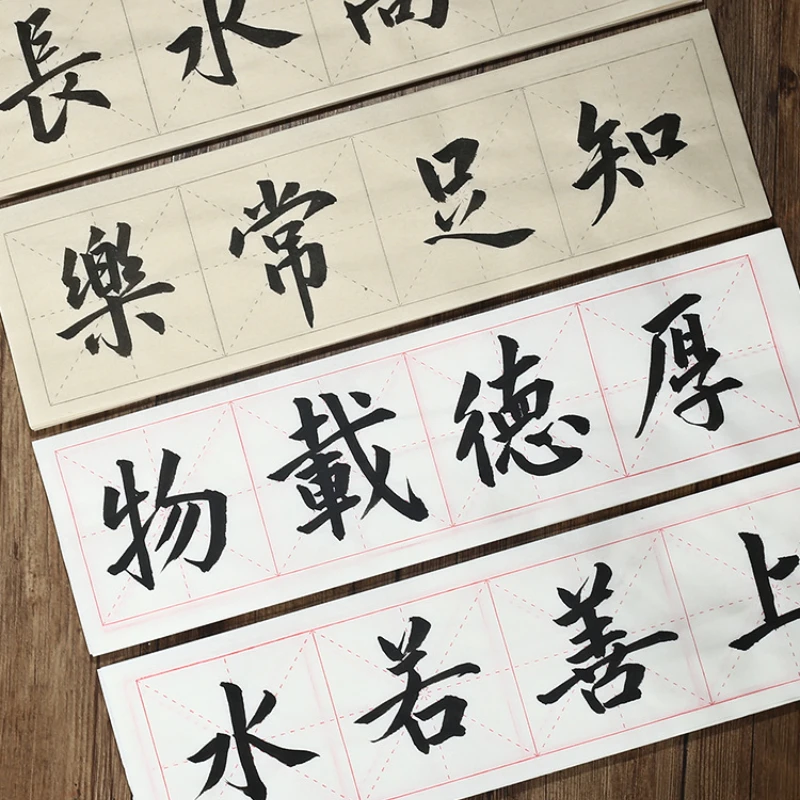 高水長
知足常樂
厚德載物
上善若水